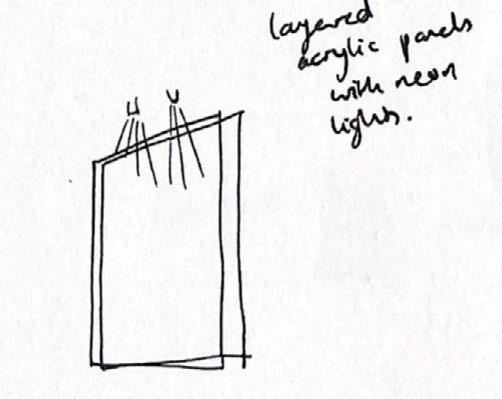 layered
acrylic panels
with neon
lights.